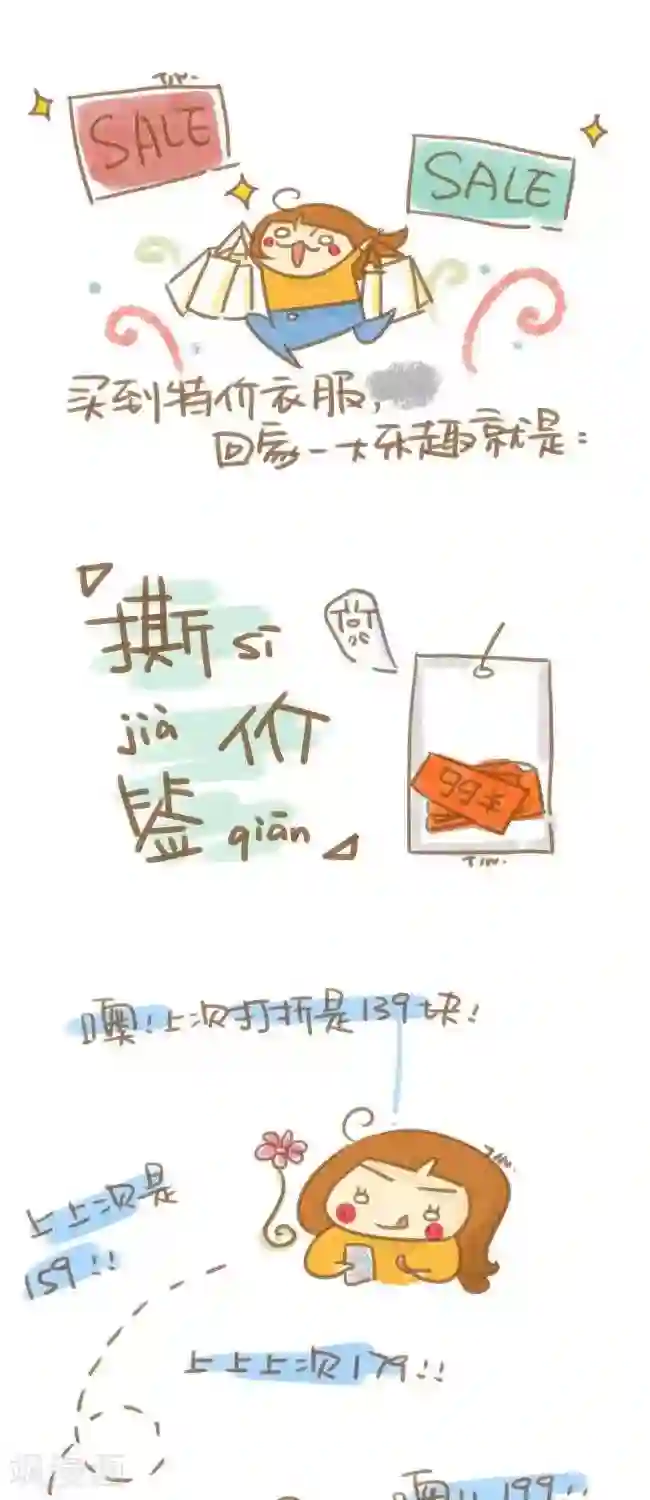 Tim.
SALE
SALE
买到特价衣服，
回家一大乐趣就是：
撕 sī
jià 价
鉴 qiān
99元
Tim.
噢！上次打折是139块！
Tim.
上上次是
159！！
上上上次179！！
噢！！199！！